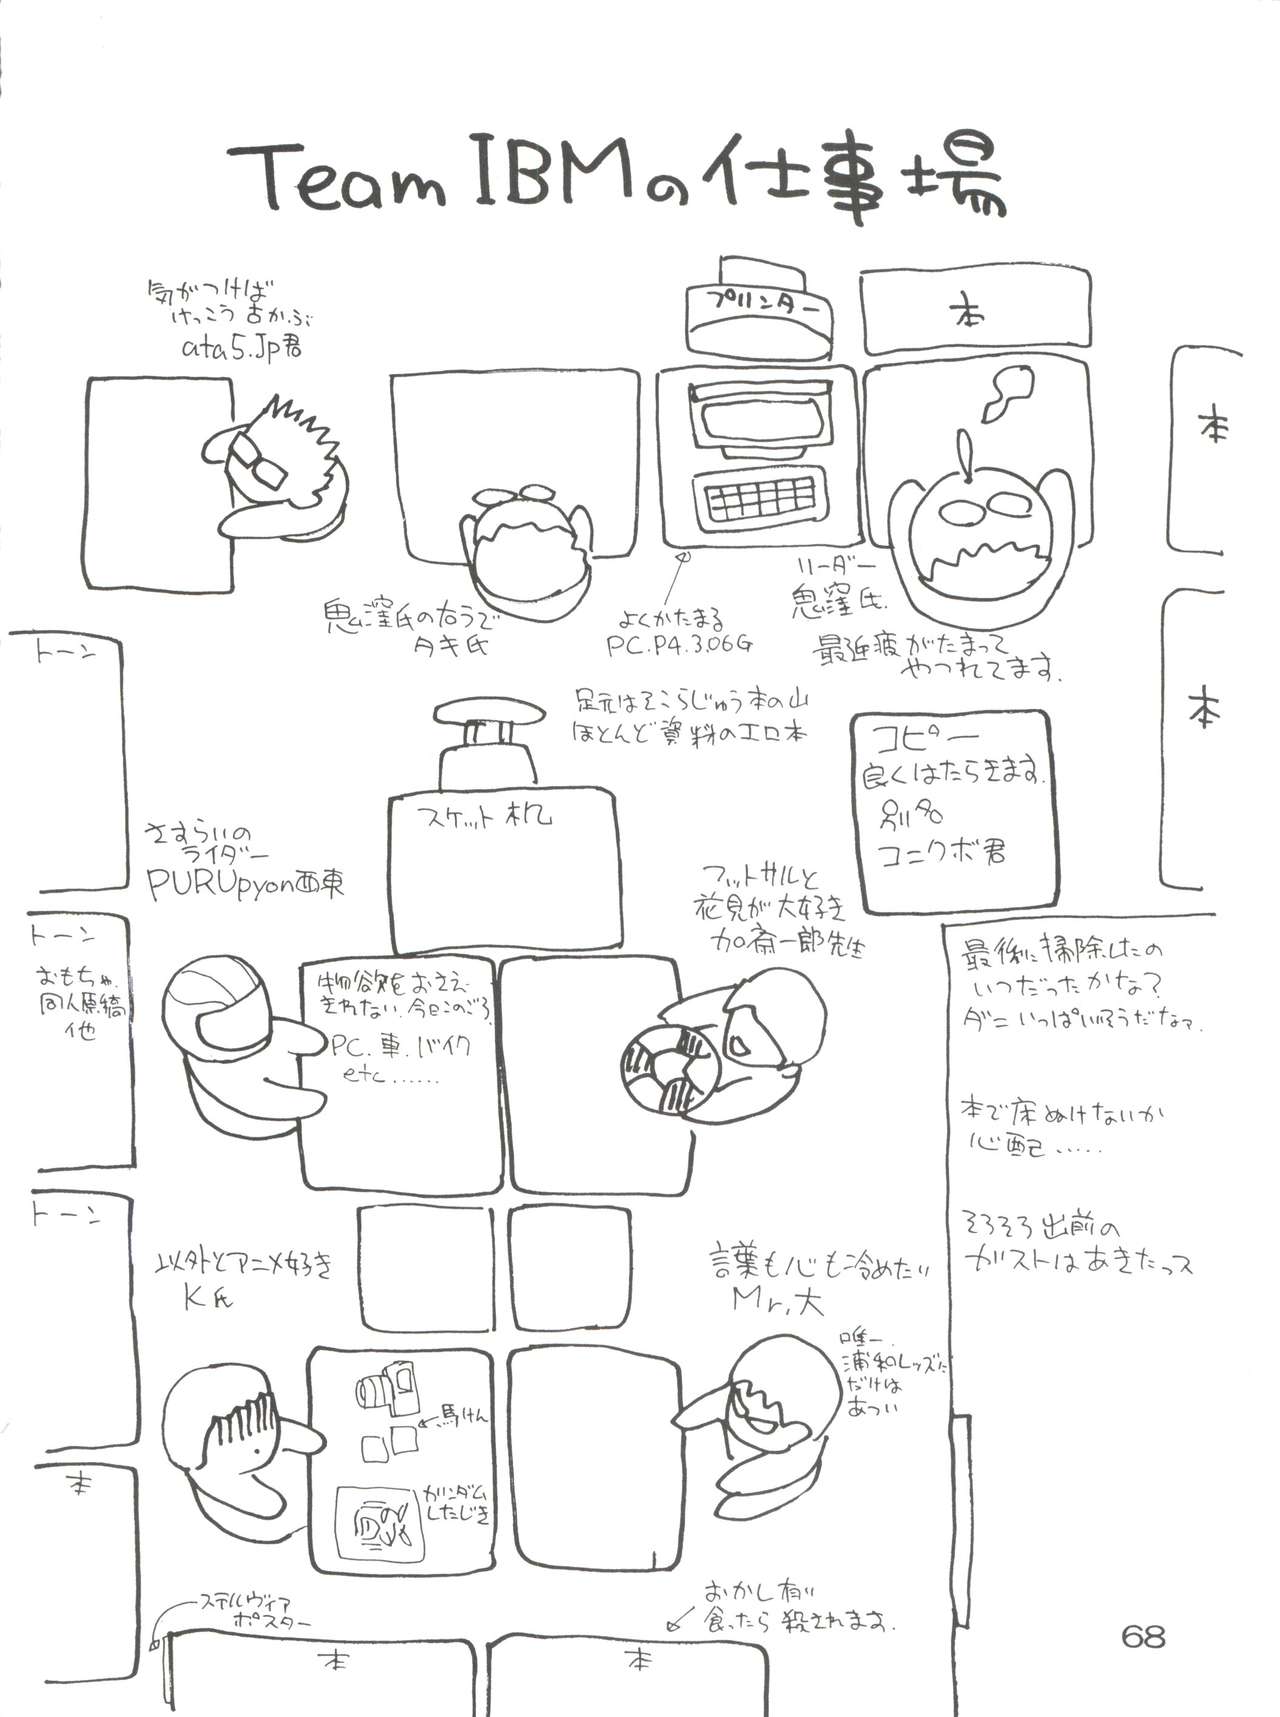 Team IBMの仕事場
気がつけば
けっこう古かぶ
ata5.Jp君
プリンター
本
本
鬼窪氏の右うで
タキ氏
よくかたまる
PC.P4.3.06G
リーダー
鬼窪氏.
最近疲がたまって
やつれてます.
トーン
足元はそこらじゅう本の山
ほとんど資料のエロ本
本
コピー
良くはたらきます.
別名
コニクボ君
スケット机
さすらいの
ライダー
PURUpyon西東
フットサルと
花見が大好き
加斎一郎先生
トーン
おもちゃ.
同人原稿
他
物欲をおさえ
きれない.今日このごろ.
PC.車.バイク
etc......
最後に掃除したの
いつだったかな?
ダニいっぱいいそうだなァ.
本で床ぬけないか
心配.....
トーン
そろそろ出前の
ガストはあきたっス
以外とアニメ好き
K氏
言葉も心も冷めたい
Mr,大
唯一.
浦和レッズに
だけは
あつい
馬けん
ガンダム
したじき
本
ステルヴィア
ポスター
おかし有い
食ったら殺されます.
本
本
68